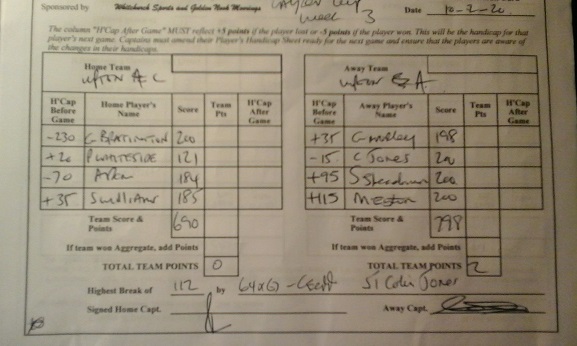 Sponsored by Whitchurch Sports and Golden Nook Moorings
Week 3
Date 10-2-20.
The column "H'Cap After Game" MUST reflect +5 points if the player lost or -5 points if the player won. This will be the handicap for that
player's next game. Captains must amend their Player's Handicap Sheet ready for the next game and ensure that the players are aware of
the changes in their handicaps.
Home Team
UPTON A C
Away Team
H'Cap Before Game Home Player's Name Score Team Pts H'Cap After Game
-230 200
+20 P WHITESIDE 121
-70 184
+35 185
Team Score & Points 690
If team won Aggregate, add Points
TOTAL TEAM POINTS 0
H'Cap Before Game Away Player's Name Score Team Pts H'Cap After Game
+35 198
-15 C Jones 200
+95 200
+115 200
Team Score & Points 798
If team won Aggregate, add Points
TOTAL TEAM POINTS 2
Highest Break of 112 by 51 Colin Jones
Signed Home Capt. Away Capt.